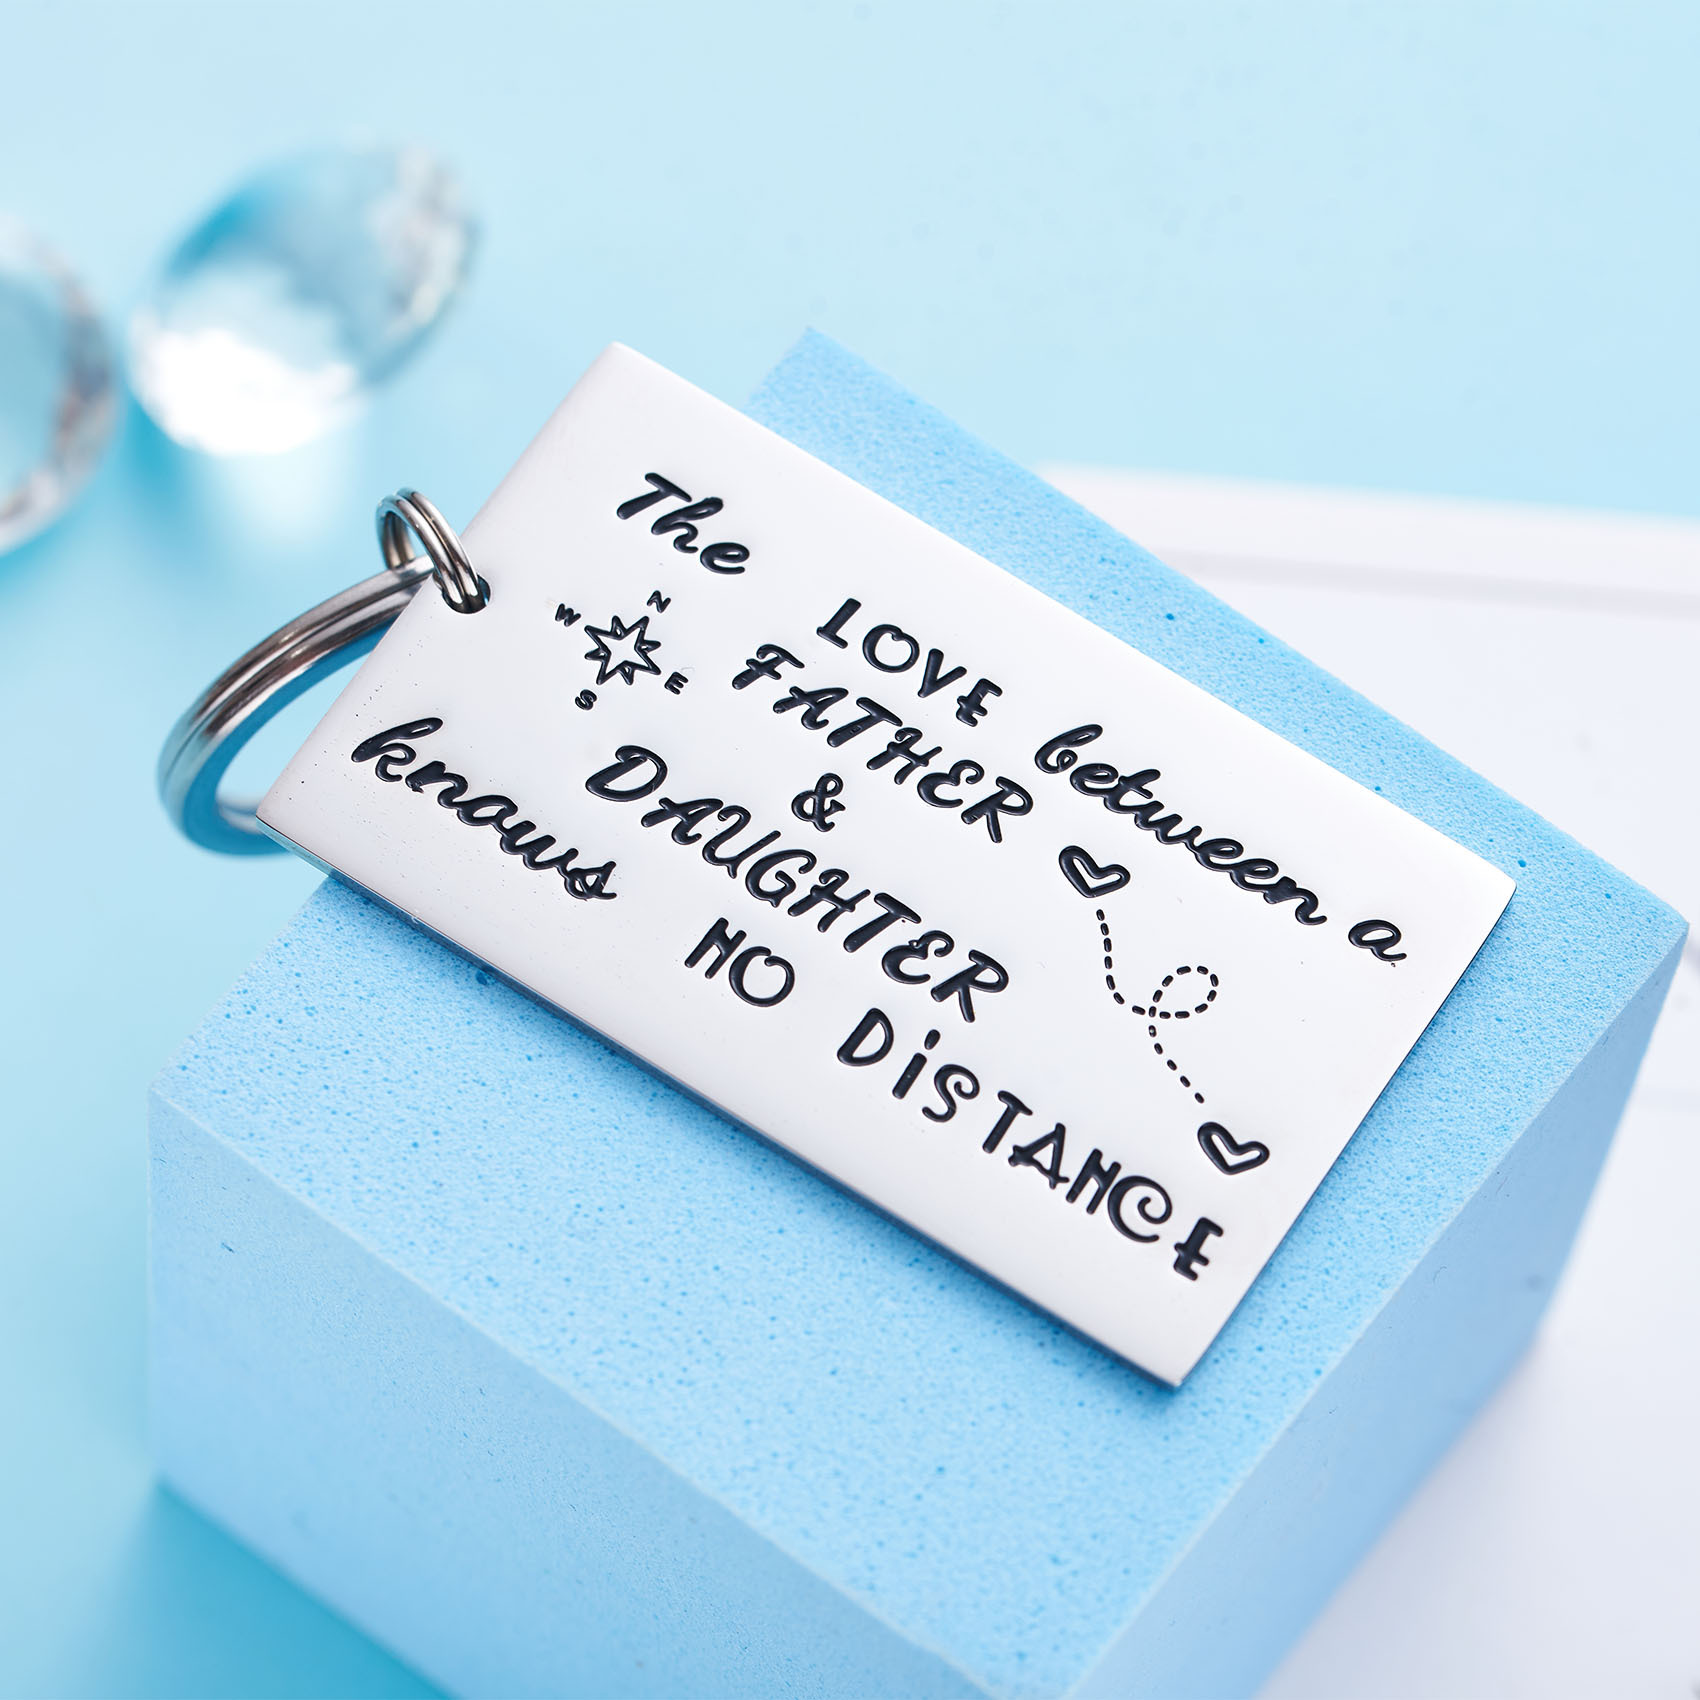 The LOVE between a
N
W
E
S
FATHER
&
DAUGHTER
knows NO DiSTANCE